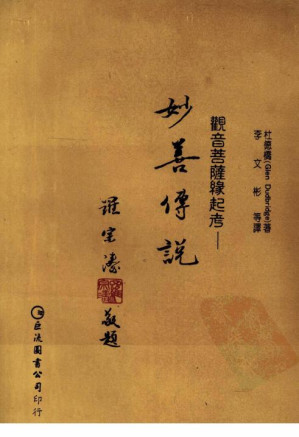 杜德橋(Glen Dudbridge)著
李文彬等譯
觀音菩薩緣起考—
妙善傳說
羅宗濤
敬題
巨流圖書公司印行